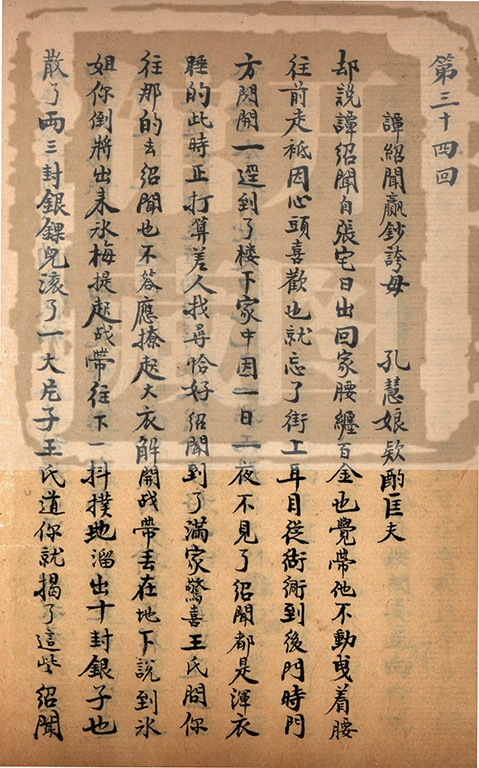 第三十四回
譚紹聞贏鈔誇母　孔慧娘款酌匡夫
却說譚紹聞自張宅日出回家腰纏百金也覺帶他不動曳着腰
往前走祗因心頭喜歡也就忘了街上耳目從衚衕到後門時門
方閃開一逕到了楼下家中因一日一夜不見了紹聞都是渾衣
睡的此時正打算差人找尋恰好紹聞到了滿家驚喜王氏問你
往那的去紹聞也不答應撩起大衣解開战帶丢在地下說到氷
姐你倒將出来氷梅提起战帶往下一抖撲地溜出十封銀子也
散了兩三封銀錁兒滚了一大片子王氏道你就揭了這些紹聞